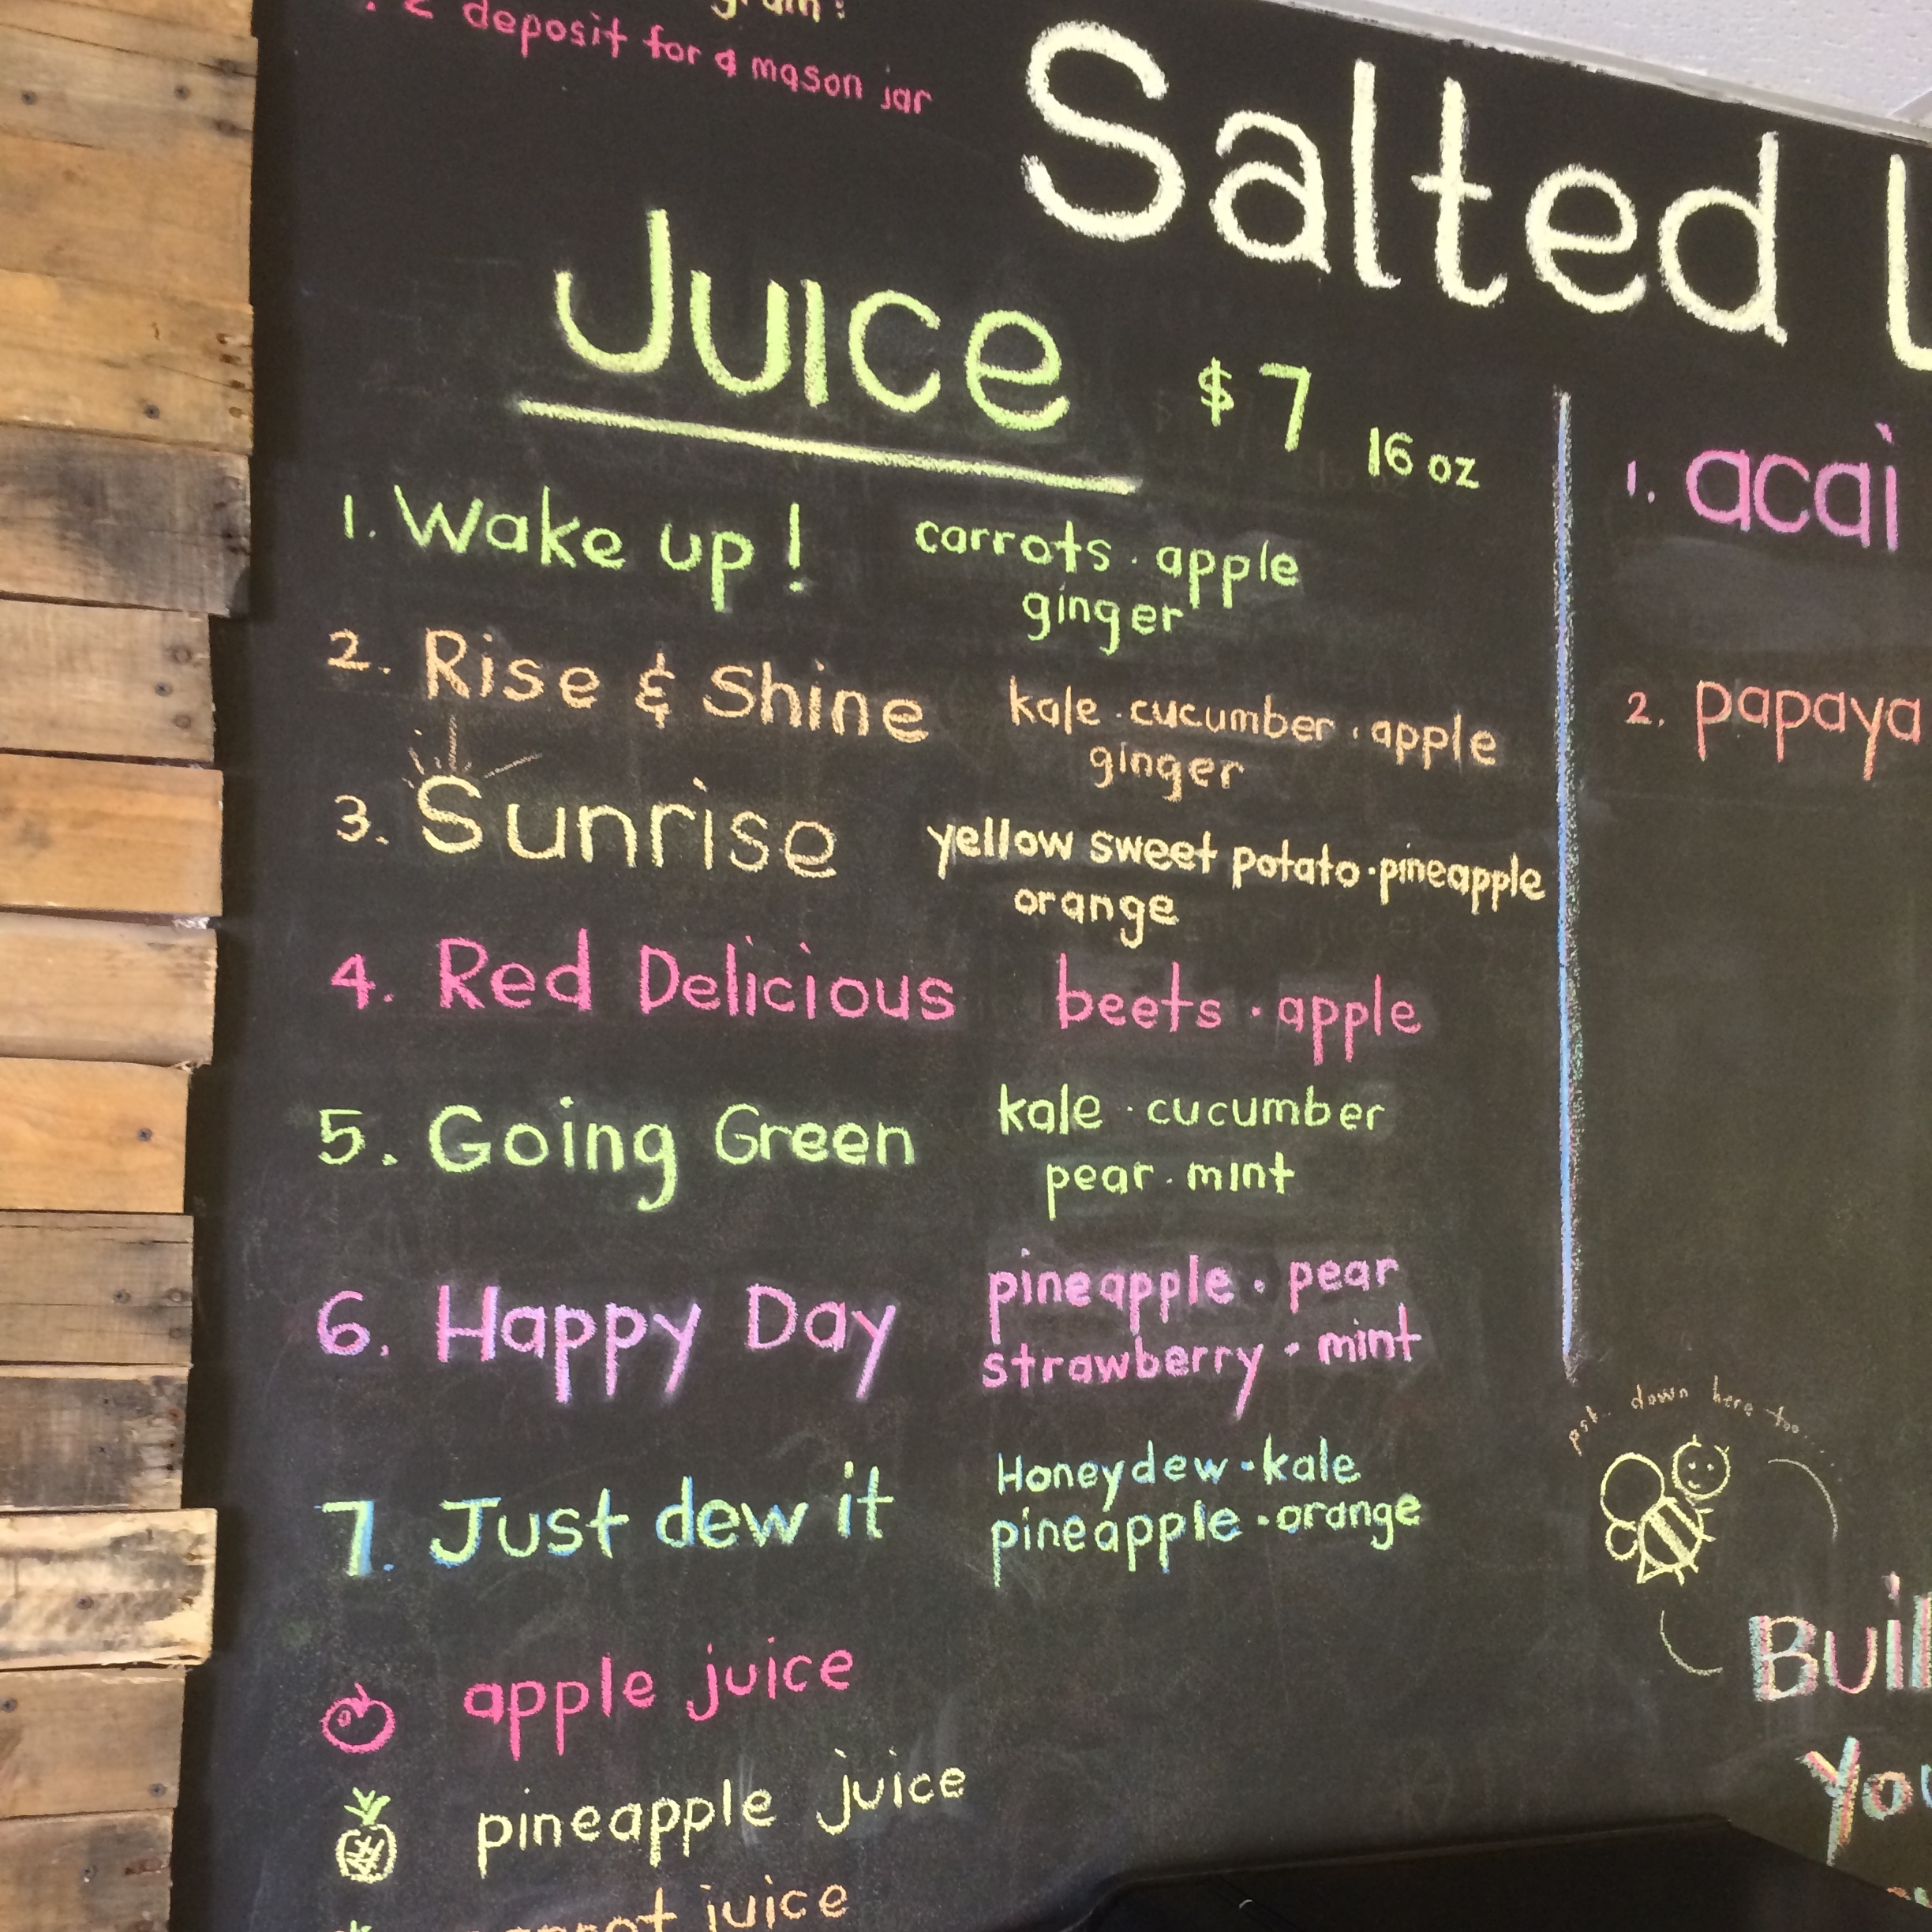 deposit for a mason jar
Salted
Juice $7 16 oz
1. Wake up! carrots · apple
ginger
2. Rise & Shine kale · cucumber · apple
ginger
3. Sunrise yellow sweet potato · pineapple
orange
4. Red Delicious beets · apple
5. Going Green kale · cucumber
pear · mint
6. Happy Day pineapple · pear
strawberry · mint
7. Just dew it Honeydew · kale
pineapple · orange
apple juice
pineapple juice
juice
1. acai
2. papaya
psst.. down here too...